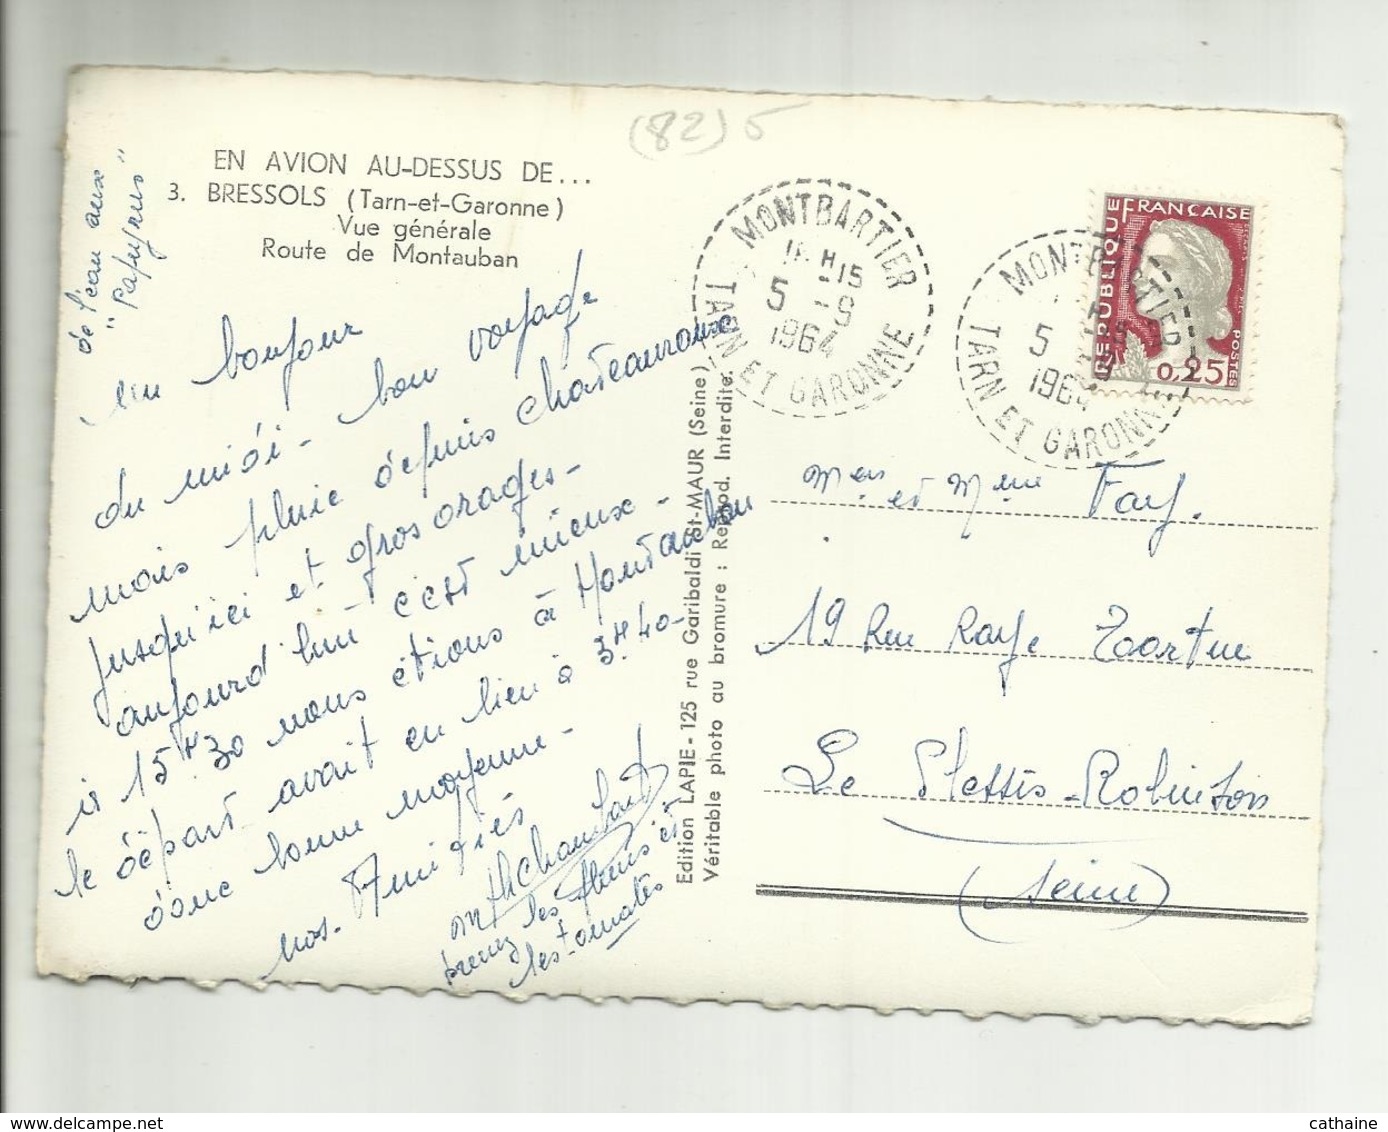 (82) 5
EN AVION AU-DESSUS DE...
3. BRESSOLS (Tarn-et-Garonne)
Vue générale
Route de Montauban
un bonjour
du midi - bon voyage
mais pluie depuis chateauroux
jusqu'ici et gros orages -
aujourd'hui c'est mieux -
à 15H30 nous étions à Montauban
le départ avait eu lieu à 3H.40 -
donc bonne moyenne -
nos. Amitiés
prenez les fleurs et
les tomates
de l'eau aux
"Papyrus"
Edition LAPIE - 125 rue Garibaldi St-MAUR (Seine)
Véritable photo au bromure : Reprod. Interdite.
MONTBARTIER
TARN ET GARONNE
15
5 - 9
1964
MONTBARTIER
TARN ET GARONNE
5
1964
REPUBLIQUE FRANÇAISE
POSTES
0,25
Mmeur et Mme Fay.
19 Rue Raye Tortue
Le Plessis-Robinson
(Seine)
cathaine